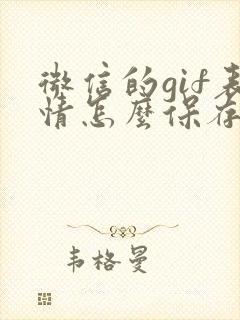 微信的gif表
情怎麼保存
韦格曼